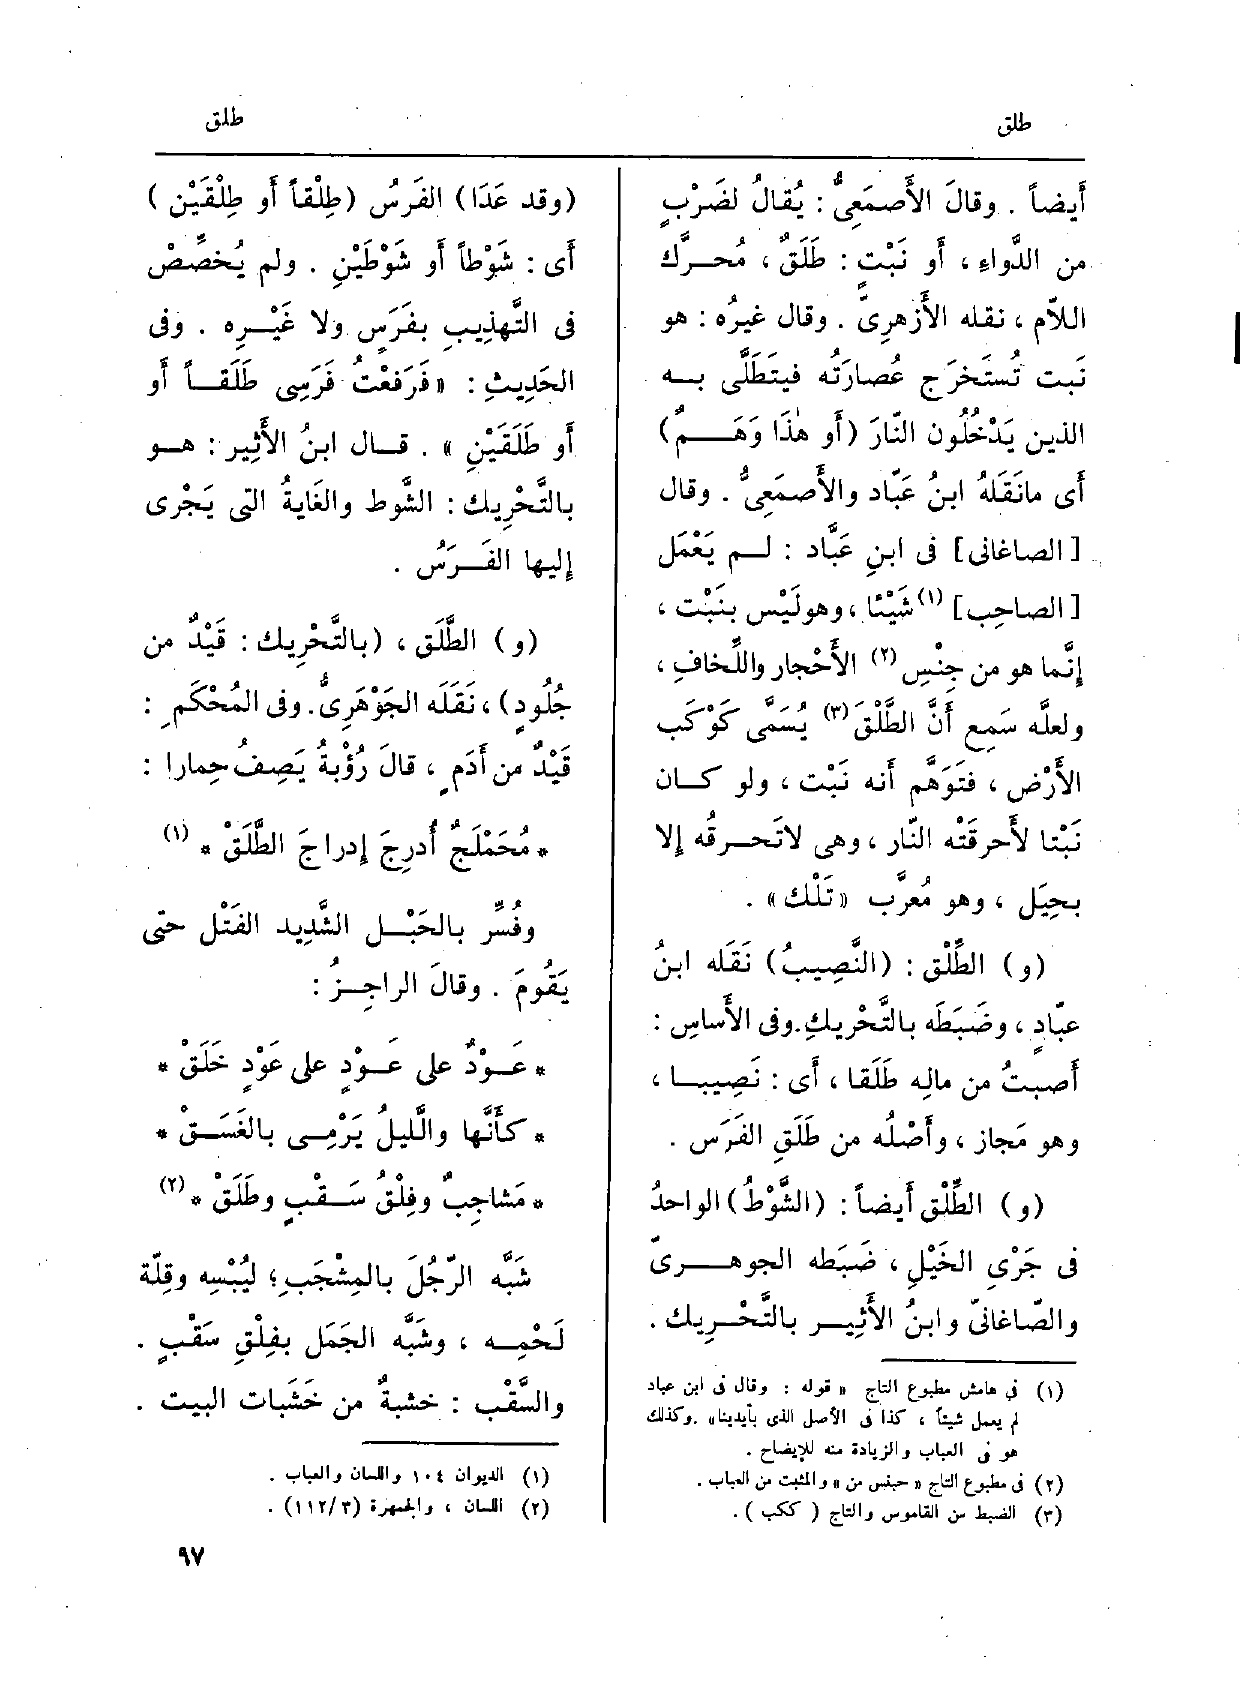 طلق
طلق
أيضاً . وقالَ الأَصمَعِىُّ : يُقالُ لضَرْبٍ
من الدَّواءِ ، أو نَبْتٍ : طَلَقٌ ، مُحــرَّك
اللاَّم ، نقله الأَزهرِىّ . وقال غيرُه : هو
نَبت تُستَخرَج عُصارَتُه فيتَطَلَّى بــه
الذين يَدْخُلُون النّارَ (أو هٰذَا وَهَــمٌ)
أى مانَقَلَهُ ابنُ عَبّاد والأَصمَعِىُّ . وقال
[الصاغانى] فى ابنِ عَبَّاد : لــم يَعْمَل
[الصاحِب] (١) شَيْئا ، وهولَيْس بنَبْت ،
إنَّما هو من جِنْسِ (٢) الأَحْجار واللِّخافِ ،
ولعلَّه سَمِع أَنَّ الطَّلْقَ (٣) يُسَمَّى كَوْكَب
الأَرْض ، فتَوَهَّم أَنه نَبْت ، ولو كــان
نَبْتا لأَحرقَتْه النّار ، وهى لاتَحــرقُه إلا
بحِيَل ، وهو مُعرَّب «تَلْك» .
(و) الطِّلْق : (النَّصِيبُ) نَقَله ابنُ
عبّادٍ ، وضَبَطَه بالتَّحْرِيكِ.وفى الأَساس :
أَصبتُ من مالِه طَلَقا ، أى : نَصِيبــا ،
وهو مَجاز ، وأَصْلُه من طَلَقِ الفَرَس .
(و) الطِّلْق أيضاً : (الشَّوْطُ) الواحدُ
فى جَرْىِ الخَيْلِ ، ضَبَطه الجوهــرىّ
والصّاغانىّ وابنُ الأَثِيــر بالتَّحْــرِيك .
(١) فى هامش مطبوع التاج « قوله : وقال فى ابن عباد
لم يعمل شيئاً ، كذا فى الأصل الذى بأيدينا» .وكذلك
هو فى العباب والزيادة منه للإيضاح .
(٢) فى مطبوع التاج « حبنس من » والمثبت من العباب .
(٣) الضبط من القاموس والتاج ( ككب ) .
(وقد عَدَا) الفَرَسُ (طِلْقاً أو طِلْقَيْن )
أى : شَوْطاً أو شَوْطَيْنِ . ولم يُخصَّصْ
فى التَّهذِيبِ بفَرَسٍ ولا غَيْــرِه . وفى
الحَدِيثِ : «فَرَفَعْتُ فَرَسِى طَلَقــاً أو
أو طَلَقَيْنِ » . قــال ابنُ الأَثِير : هــو
بالتَّحْرِيك : الشَّوط والغَايةُ التى يَجْرِى
إليها الفَــرَسُ .
(و) الطَّلَق ، (بالتَّحْرِيك : قَيْدٌ من
جُلُودٍ) ، نَقَلَه الجَوْهَرِىُّ. وفى المُحْكَمِ :
قَيْدٌ من أَدَمٍ ، قالَ رُؤْبةُ يَصِفُ حِمارا :
* مُحَمْلَجٌ أُدرِجَ إدراجَ الطَّلَقْ * (١)
وفُسِّر بالحَبْــل الشَّدِيد الفَتْل حتى
يَقُومَ . وقالَ الراجِــزُ :
* عَــوْدٌ على عَــوْدٍ على عَوْدٍ خَلَقْ *
* كأَنَّها واللَّيلُ يَرْمِــى بالغَسَــقْ *
* مَشاجِبٌ وفِلْقُ سَــقْبٍ وطَلَقْ * (٢)
شَبَّه الرّجُلَ بالمِشْجَبِ؛ ليُبْسِه وقِلّة
لَحْمِــه ، وشَبَّه الجَمَل بفِلْقِ سَقْبٍ .
والسَّقْب : خشبةٌ من خَشَبات البيت .
(١) الديوان ١٠٤ واللسان والعباب .
(٢) اللسان ، والجمهرة (١١٢/٣) .
٩٧